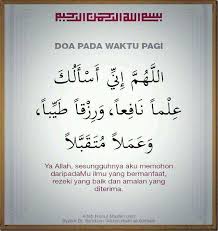 بسم الله الرحمن الرحيم
DOA PADA WAKTU PAGI
اَللَّهُمَّ إِنِّي أَسْأَلُكَ
عِلْماً نَافِعاً، وَرِزْقاً طَيِّباً،
وَعَمَلاً مُتَقَبَّلاً
Ya Allah, sesungguhnya aku memohon
daripadaMu ilmu yang bermanfaat,
rezeki yang baik dan amalan yang
diterima.